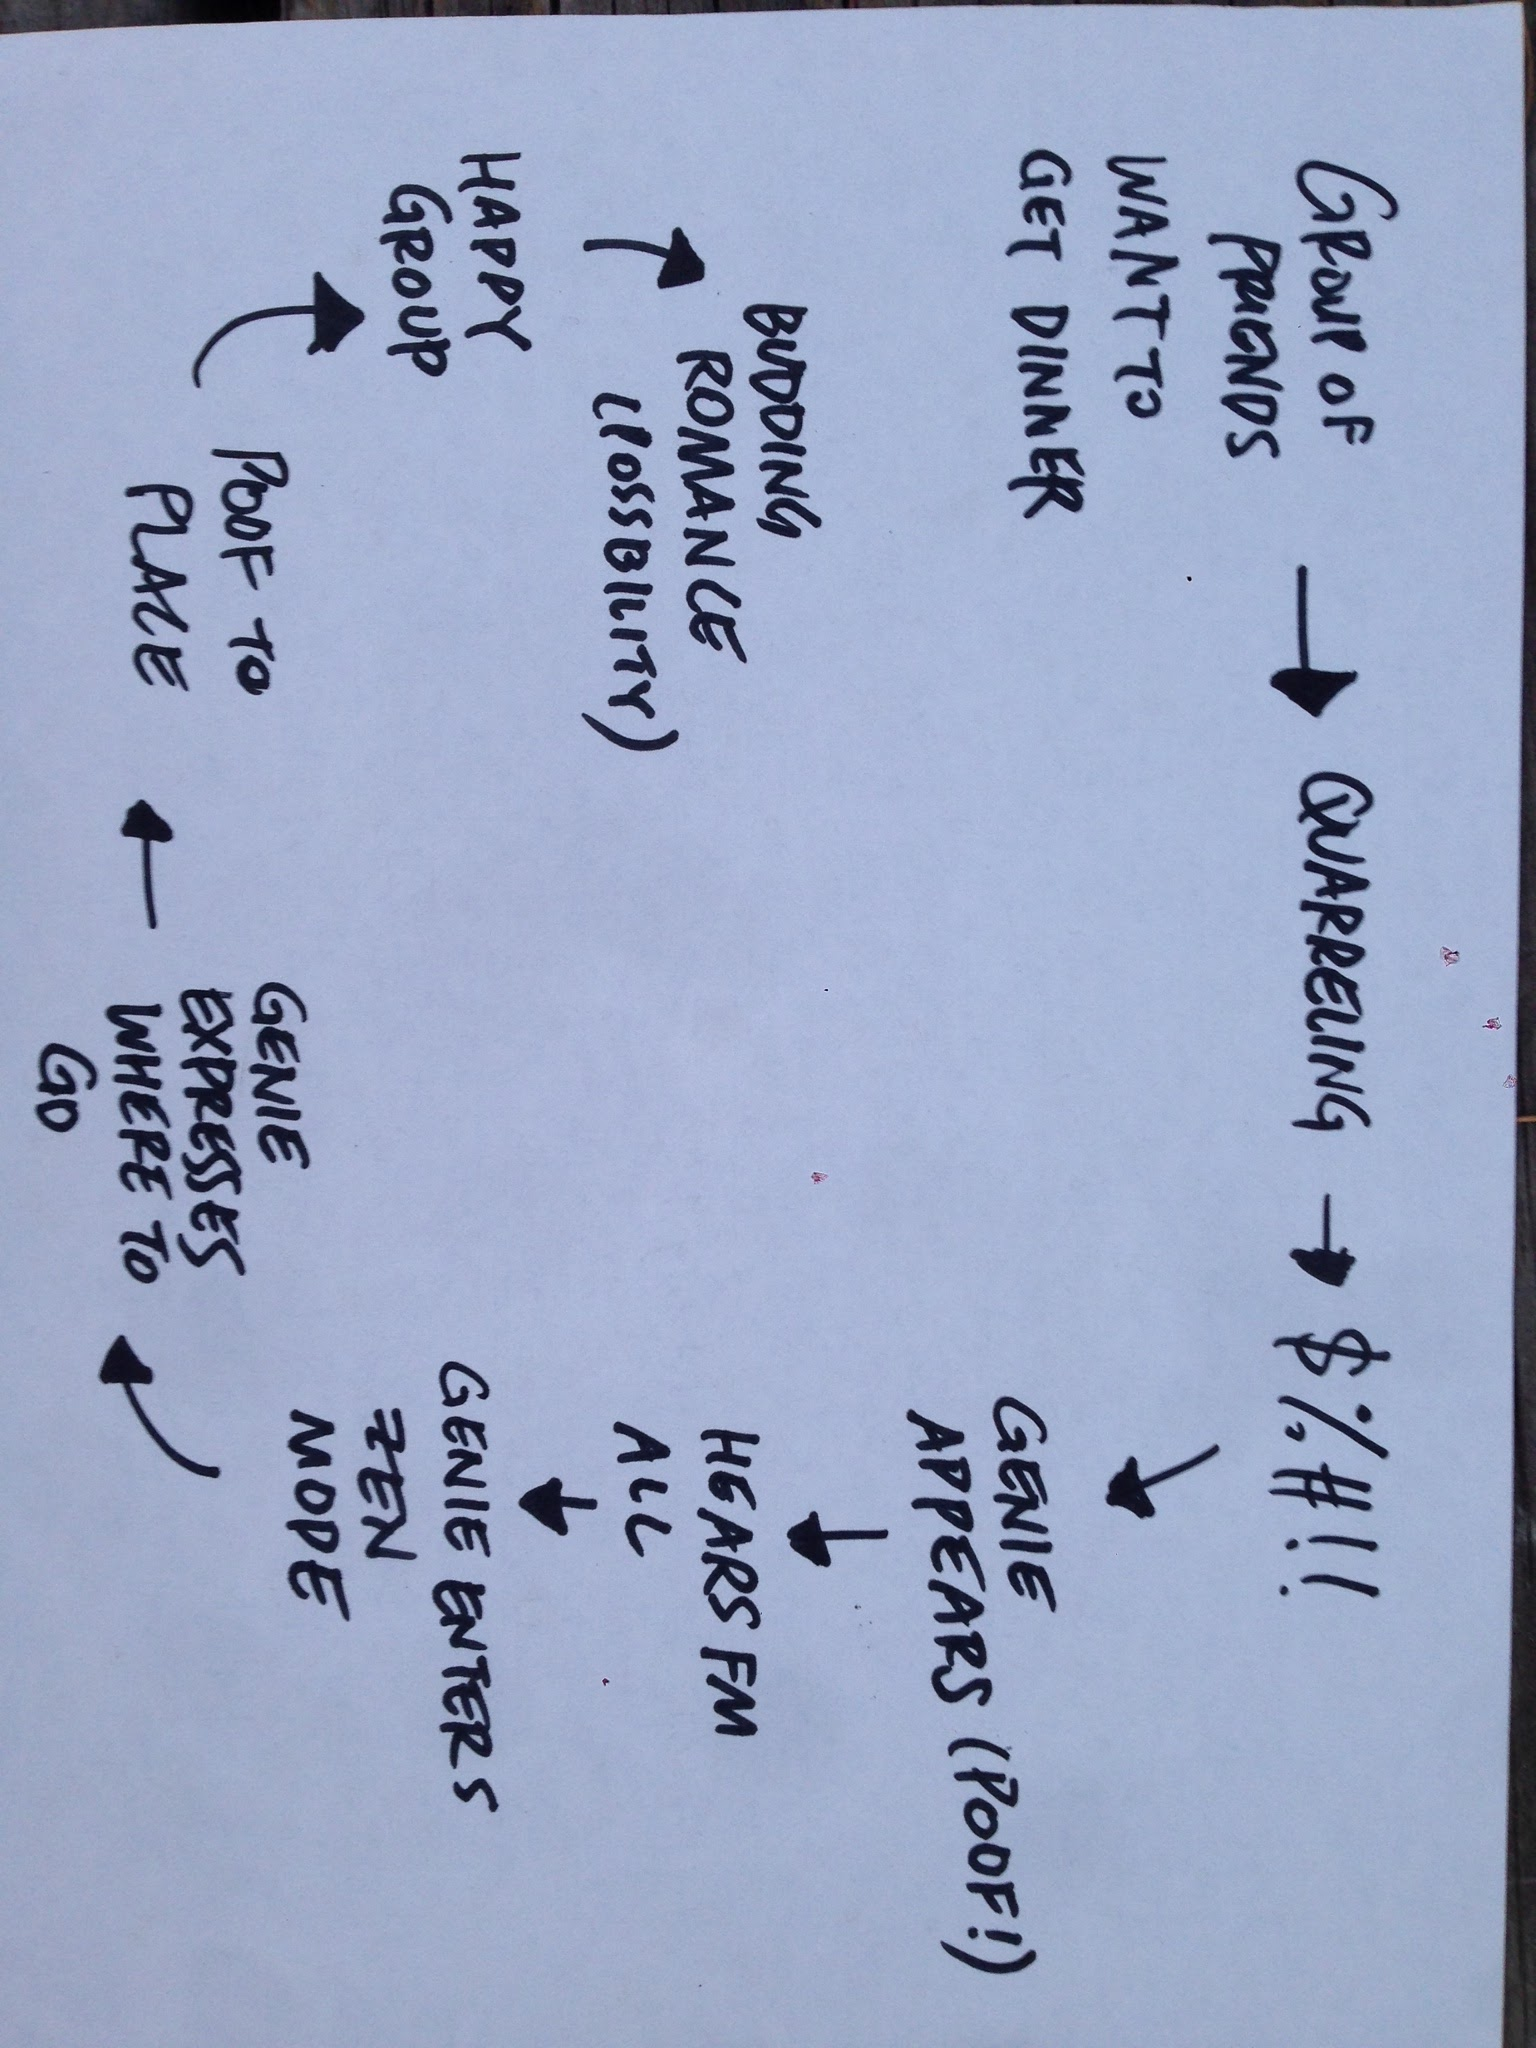 GROUP OF
FRIENDS
WANT TO
GET DINNER
QUARRELING
$%#!!
GENIE
APPEARS (POOF!)
HEARS FM
ALL
GENIE ENTERS
ZEN
MODE
GENIE
EXPRESSES
WHERE TO
GO
POOF TO
PLACE
HAPPY
GROUP
BUDDING
ROMANCE
(POSSBILITY)